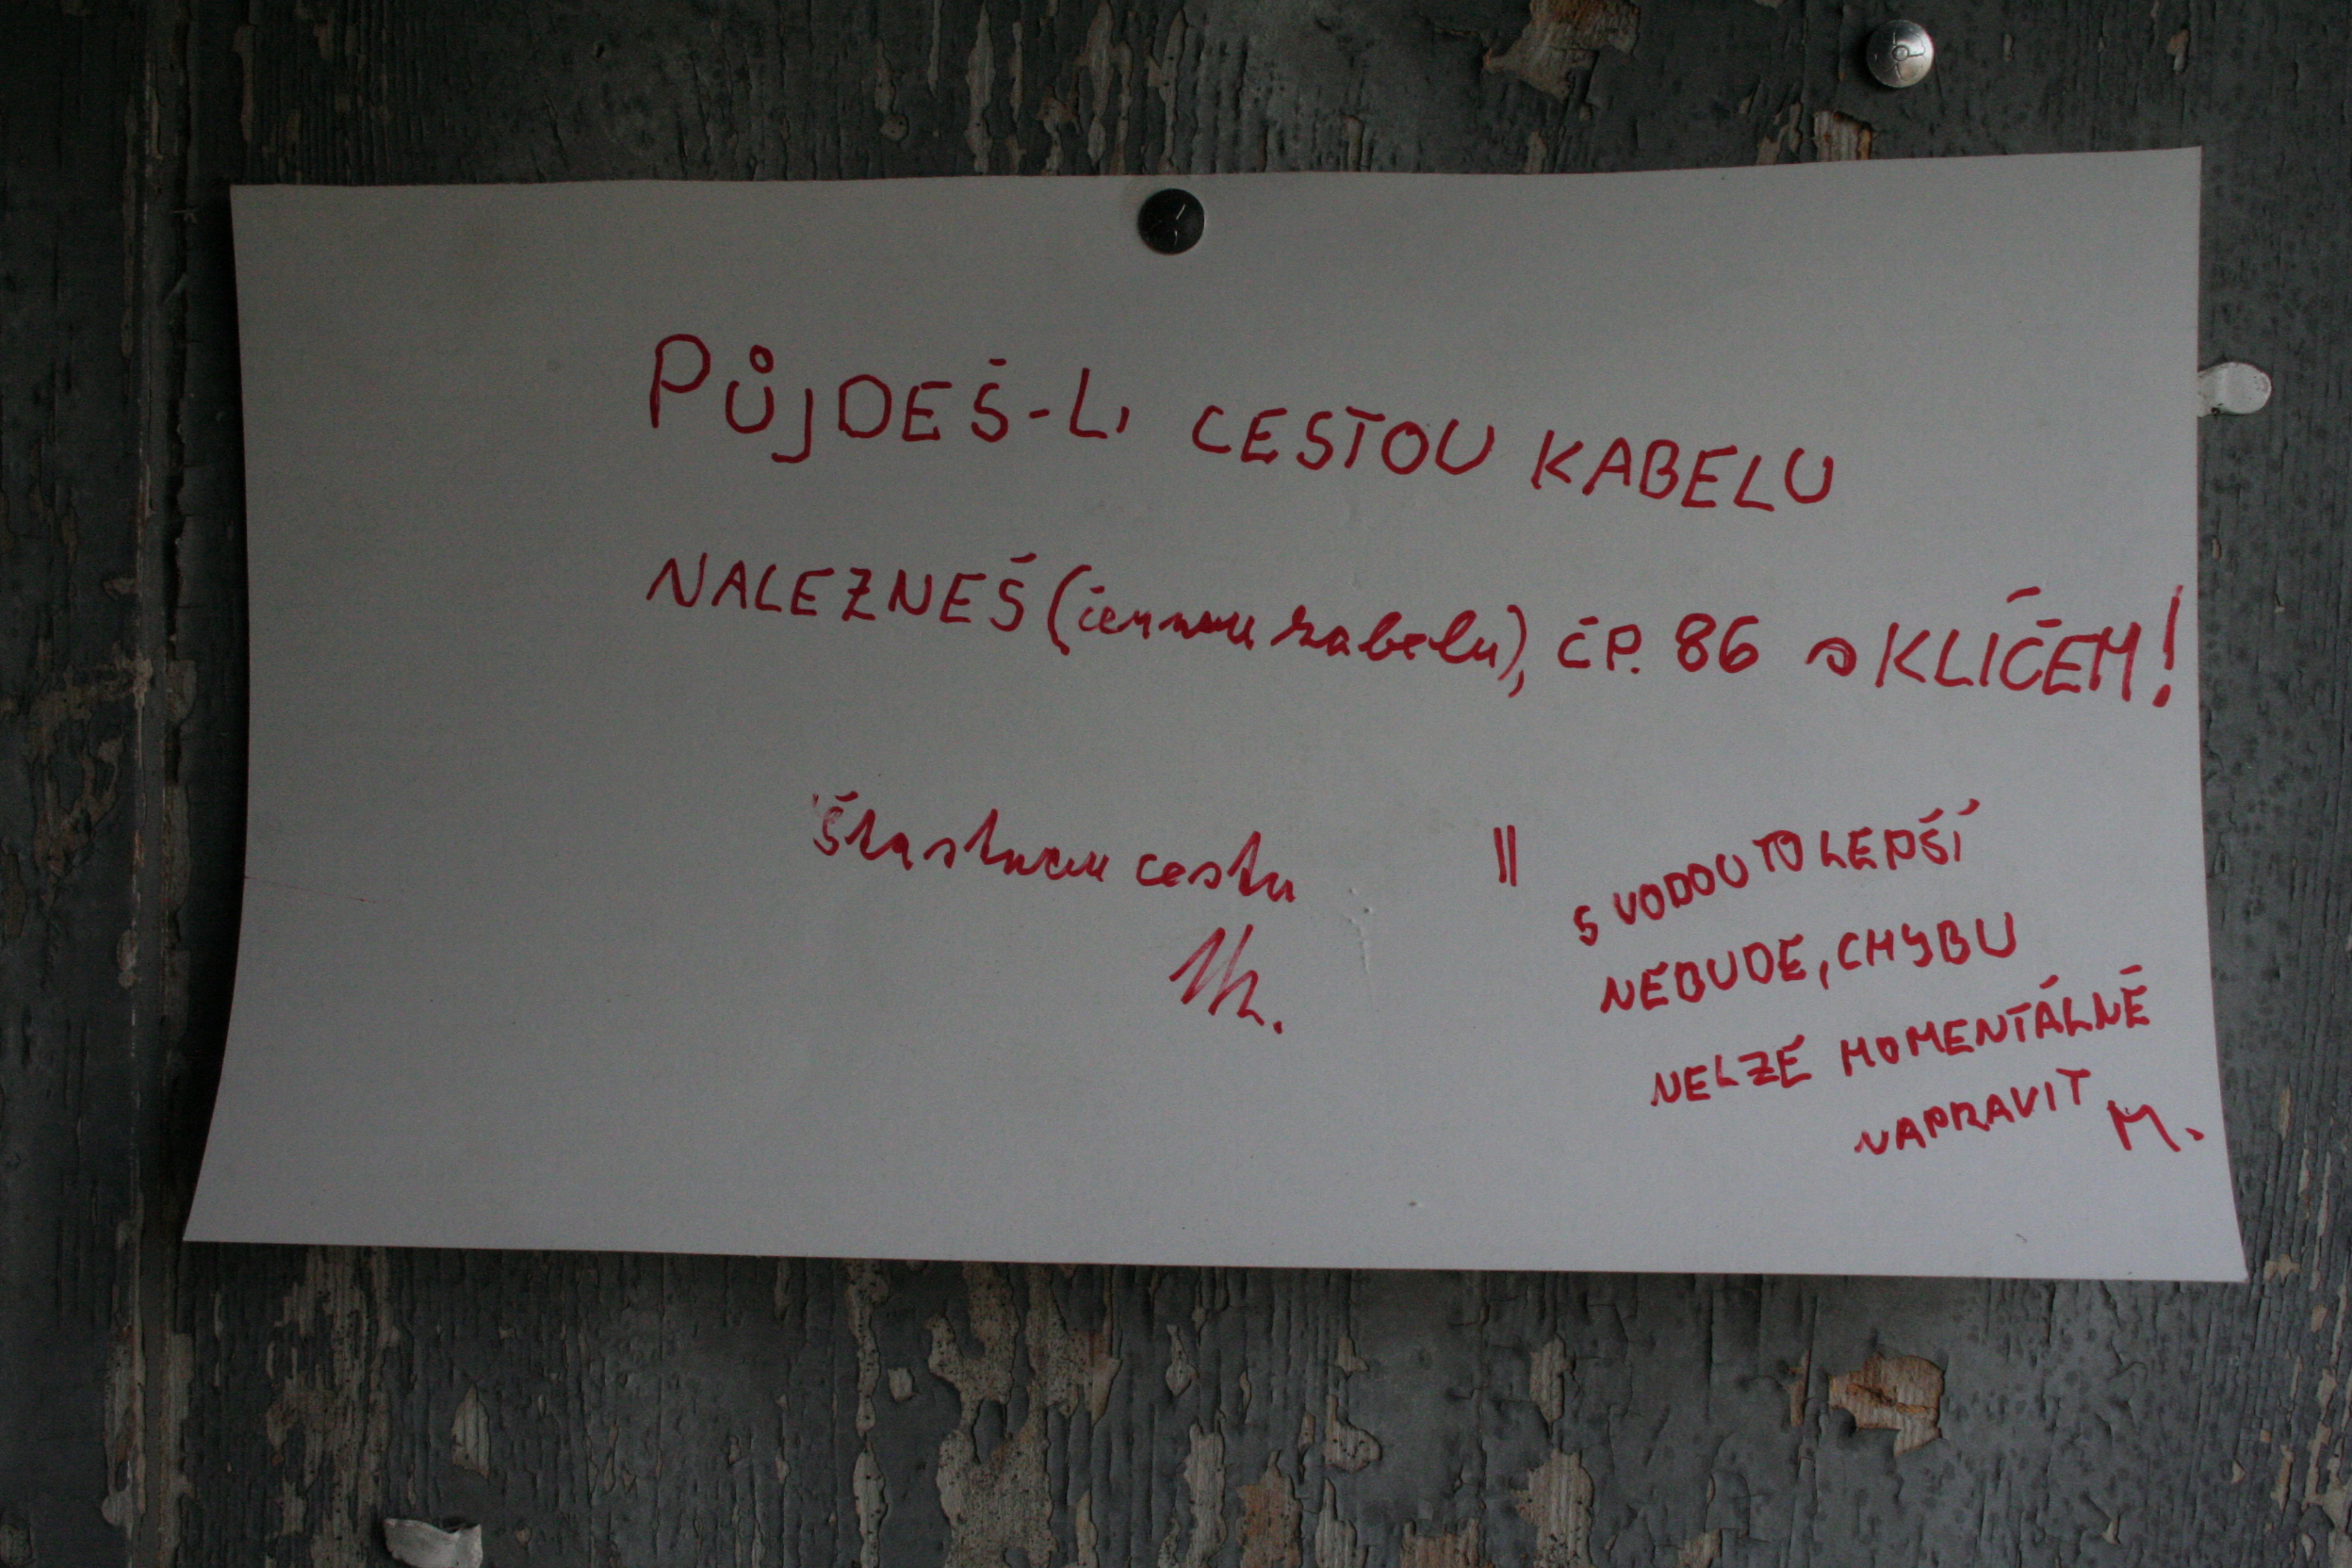 PŮJDEŠ-LI CESTOU KABELU
NALEZNEŠ (černou kabelu), ČP. 86 s KLÍČEM!
Šťastnou cestu
M.
" S VODOU TO LEPŠÍ
NEBUDE, CHYBU
NELZE MOMENTÁLNĚ
NAPRAVIT M.